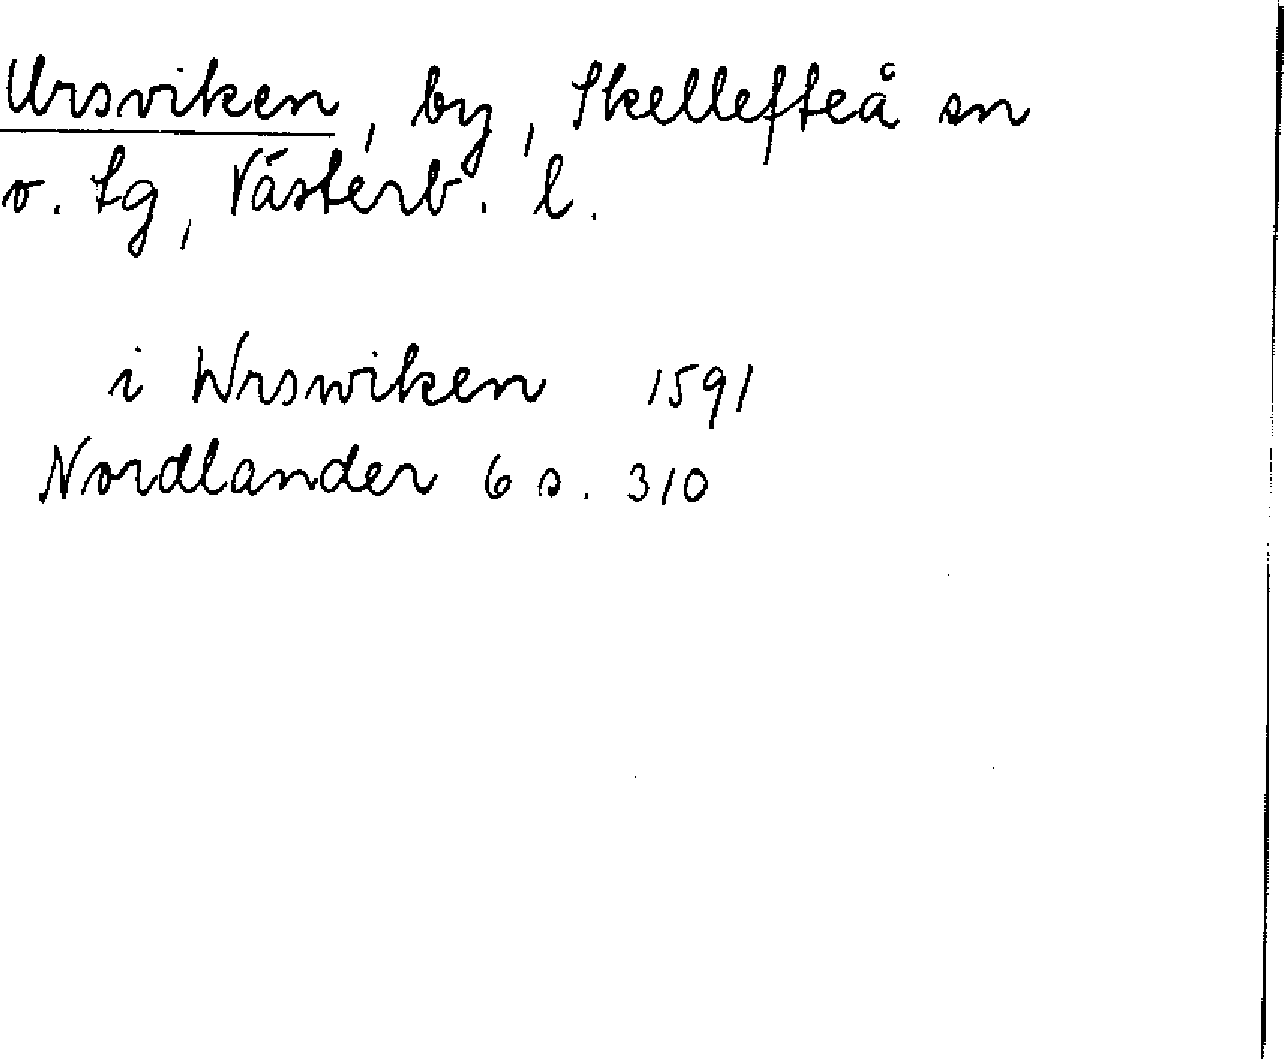 Ursviken, by, Skellefteå sn
o. tg, Västerb. l.
i Wrswiken 1591
Nordlander 6 s. 310